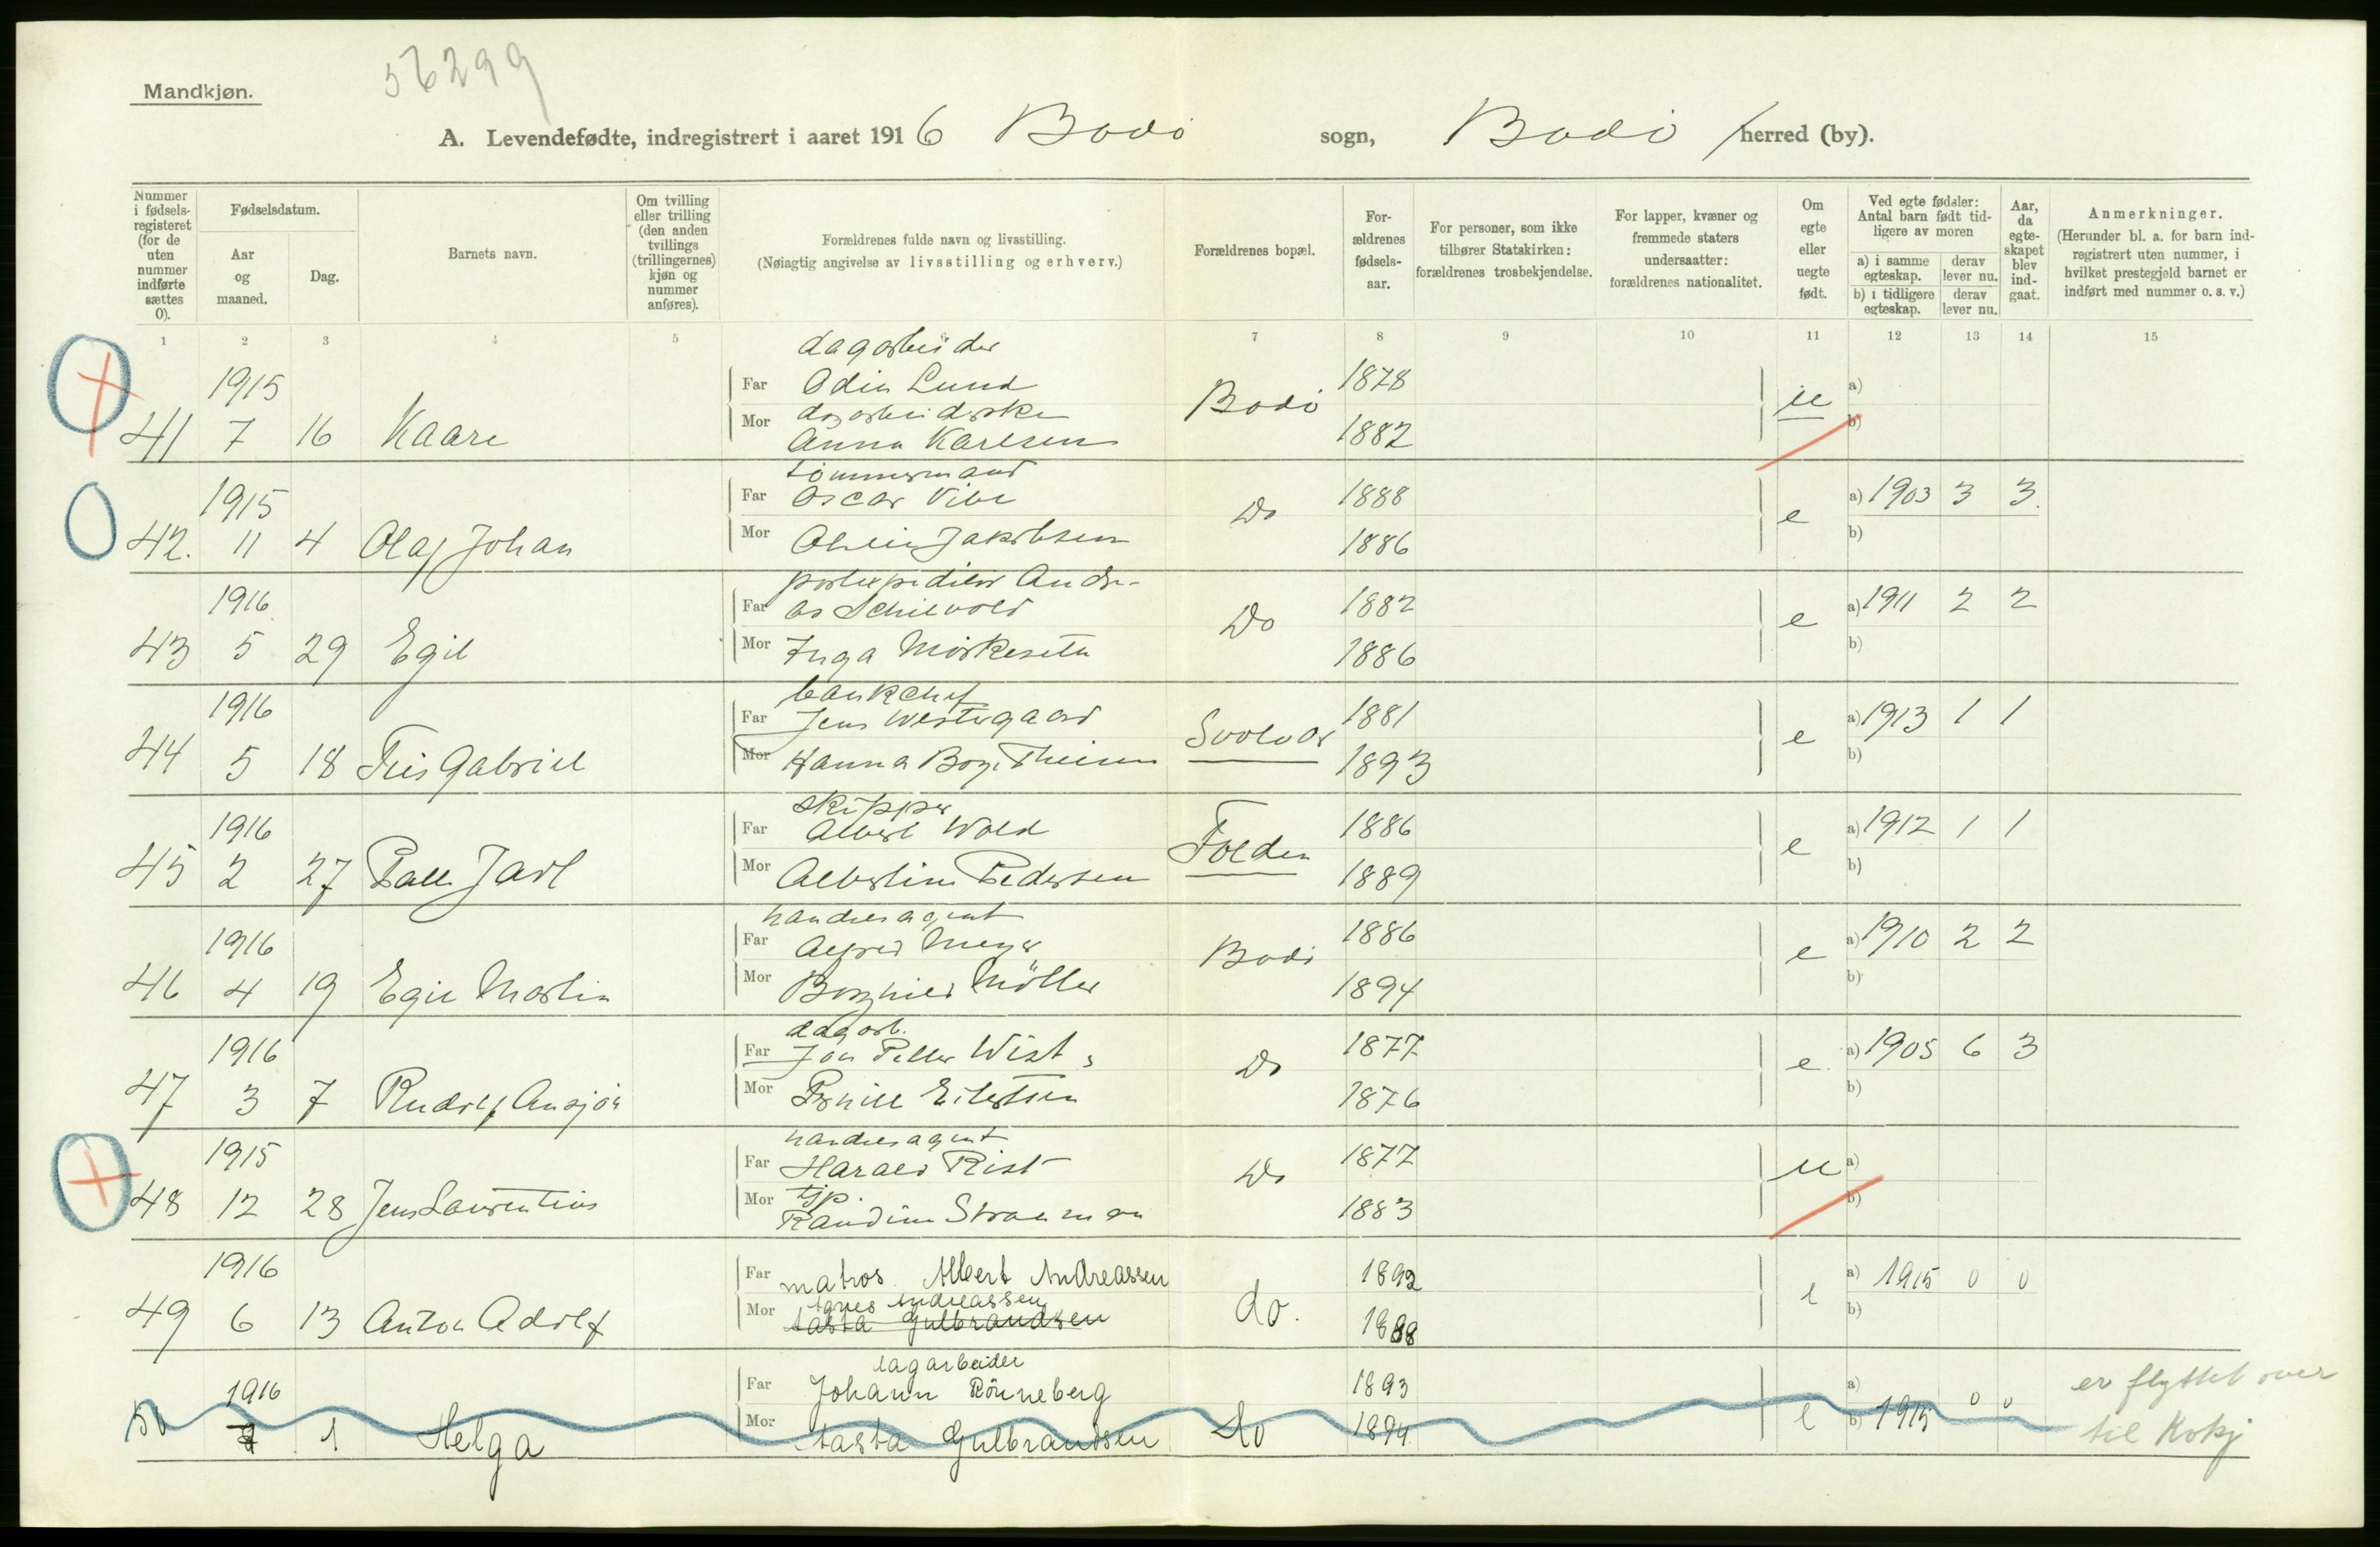 56299
Mandkjøn.
A. Levendefødte, indregistrert i aaret 1916 Bodö sogn, Bodö herred (by).
Nummer i fødselsregisteret (for de uten nummer indførte sættes 0).
Fødselsdatum.
Aar og maaned.
Dag.
Barnets navn.
Om tvilling eller trilling (den anden tvillings (trillingernes) kjøn og nummer anføres).
Forældrenes fulde navn og livsstilling.
(Nøiagtig angivelse av livsstilling og erhverv.)
Forældrenes bopæl.
Forældrenes fødselsaar.
For personer, som ikke tilhører Statskirken: forældrenes trosbekjendelse.
For lapper, kvæner og fremmede staters undersaatter: forældrenes nationalitet.
Om egte eller uegte født.
Ved egte fødsler: Antal barn født tidligere av moren
a) i samme egteskap. derav lever nu.
b) i tidligere egteskap. derav lever nu.
Aar, da egteskapet blev indgaat.
Anmerkninger.
(Herunder bl. a. for barn indregistrert uten nummer, i hvilket prestegjeld barnet er indført med nummer o. s. v.)
1 2 3 4 5 6 7 8 9 10 11 12 13 14 15
dagarbeider
1915 Far Odin Lund Bodö 1878 u a)
dagarbeiderske
41 7 16 Kaare Mor Anna Karlsen 1882 b)
tömmermand
1915 Far Oscar Vibe Do 1888 e a) 1903 3 3.
42. 11 4 Olaf Johan Mor Jakobsen 1886 b)
postexpeditör Andre-
1916 Far as Do 1882 e a) 1911 2 2
43 5 29 Egil Mor Inga 1886 b)
bankchef
1916 Far Jens Westergaard Svolvær 1881 e a) 1913 1 1
44 5 18 Gabriel Mor Hanna 1893 b)
skipper
1916 Far Albert Wold Folden 1886 e a) 1912 1 1
45 2 27 Palle Jarl Mor Albertine Pedersen 1889 b)
handelsagent
1916 Far Alfred Meyer Bodö 1886 e a) 1910 2 2
46 4 19 Egil Martin Mor Borghild Möller 1894 b)
dagarb.
1916 Far Jon Petter Wist Do 1877 e a) 1905 6 3
47 3 7 Rudolf Ansjön Mor Pernille Eilertsen 1876 b)
handelsagent
1915 Far Harald Rist Do 1877 u a)
tjp.
48 12 28 Jens Laurentius Mor Randine Straumøn 1883 b)
1916 Far matros Albert Andreassen do. 1892 e a) 1915 0 0
Agnes Andreassen
49 6 13 Anton Adolf Mor Tasta Gulbrandsen 1888 b)
dagarbeider
1916 Far Johann Rönneberg 1893 a) 0 0 er flyttet over
50 1 Helga Mor Tasta Gulbrandsen do 1894 e b) 1915 til Kvkj